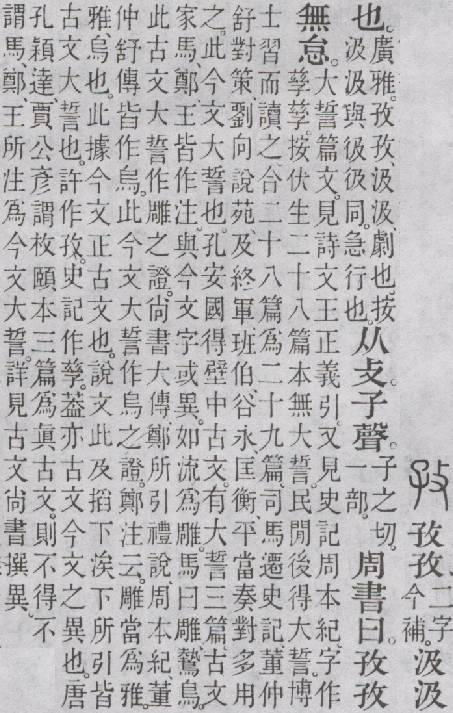 孜孜孜二字今補。汲汲
也。廣雅。孜孜、汲汲、劇也。按汲汲與彶彶同。急行也。从攴。子聲。子之切。一部。周書曰。孜孜
無怠。大誓篇文。見詩文王正義引。又見史記周本紀。字作
孳孳。按伏生二十八篇本無大誓。民閒後得大誓。博
士習而讀之。合二十八篇爲二十九篇。司馬遷史記董仲
舒對策、劉向說苑、及終軍、班伯、谷永、匡衡、平當奏對多用
之。此今文大誓也。孔安國得壁中古文。有大誓三篇。古文
家馬、鄭、王皆作注。與今文字或異。如流爲雕。馬曰雕、鷙鳥。
此古文大誓作雕之證。尙書大傳、鄭所引禮說、周本紀、董
仲舒傳皆作烏。此今文大誓作烏之證。鄭注云。雕當爲雅。
雅、烏也。此據今文正古文也。說文此及搯下涘下所引皆
古文大誓也。許作孜。史記作孳。葢亦古文今文之異也。唐
孔穎達、賈公彥謂枚頤本三篇爲眞古文。則不得不
謂馬、鄭、王所注爲今文大誓。詳見古文尙書撰異。